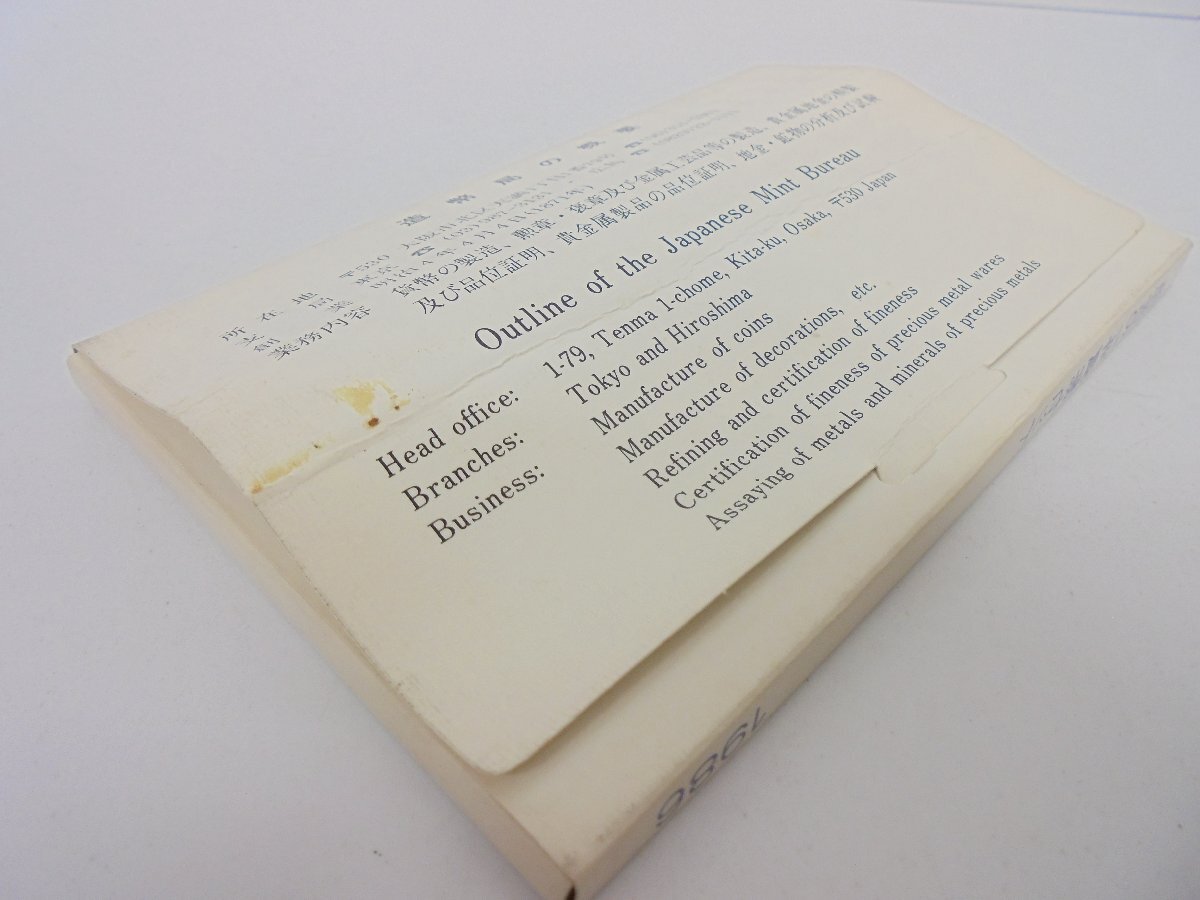 造幣局の概要
所在地 〒530
創業
業務内容 貨幣の製造、勲章・褒章及び金属工芸品等の製造、貴金属地金の精製
及び品位証明、貴金属製品の品位証明、地金・鉱物の分析及び試験
Outline of the Japanese Mint Bureau
Head office: 1-79, Tenma 1-chome, Kita-ku, Osaka, 〒530 Japan
Branches: Tokyo and Hiroshima
Business: Manufacture of coins
Manufacture of decorations, etc.
Refining and certification of fineness
Certification of fineness of precious metal wares
Assaying of metals and minerals of precious metals
1986